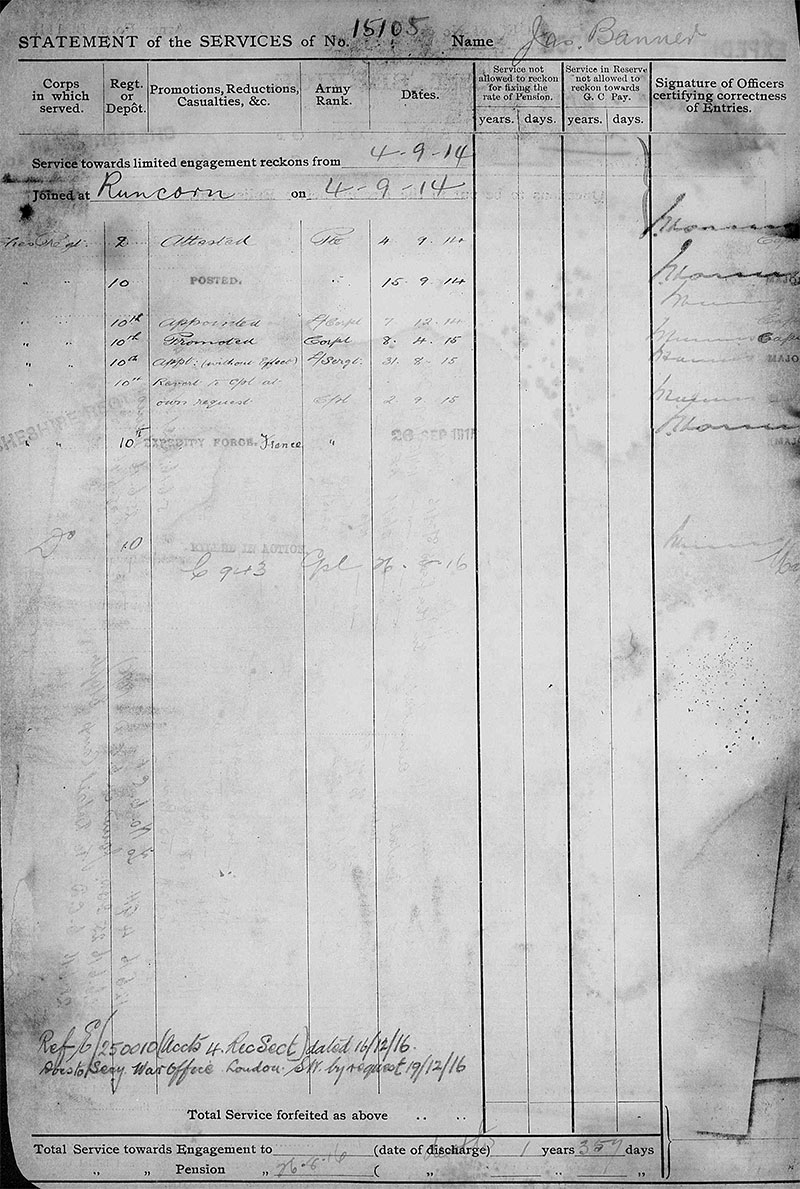 STATEMENT of the SERVICES of No. 15105 Name Jas. Banner
Corps in which served.
Regt. or Depôt.
Promotions, Reductions, Casualties, &c.
Army Rank.
Dates.
Service not allowed to reckon for fixing the rate of Pension.
years. days.
Service in Reserve not allowed to reckon towards G. C Pay.
years. days.
Signature of Officers certifying correctness of Entries.
Service towards limited engagement reckons from 4-9-14
Joined at Runcorn on 4-9-14
2 Attested Pte 4 9 14
" " 10 POSTED. " 15 9 14 MAJOR
" " 10th Appointed L/Corpl 7 12 14
" " 10th Promoted Corpl 8 4 15 Capt
" " 10th Appt: (without Effect) L/Sergt 31 8 15 MAJO
" " 10th Revert to Cpl at
own request Cpl 2 9 15
" " 10th EXPEDITY FORCE. France " 26 SEP 1915
Do 10 KILLED IN ACTION
Cpl 16
Ref E/250010 (Accts 4. Rec Sect) dated 16/12/16.
Secy War Office London. S.W. by request 19/12/16
Total Service forfeited as above .. ..
Total Service towards Engagement to (date of discharge) 1 years 357 days
" " Pension " 26-8-16 ( " "